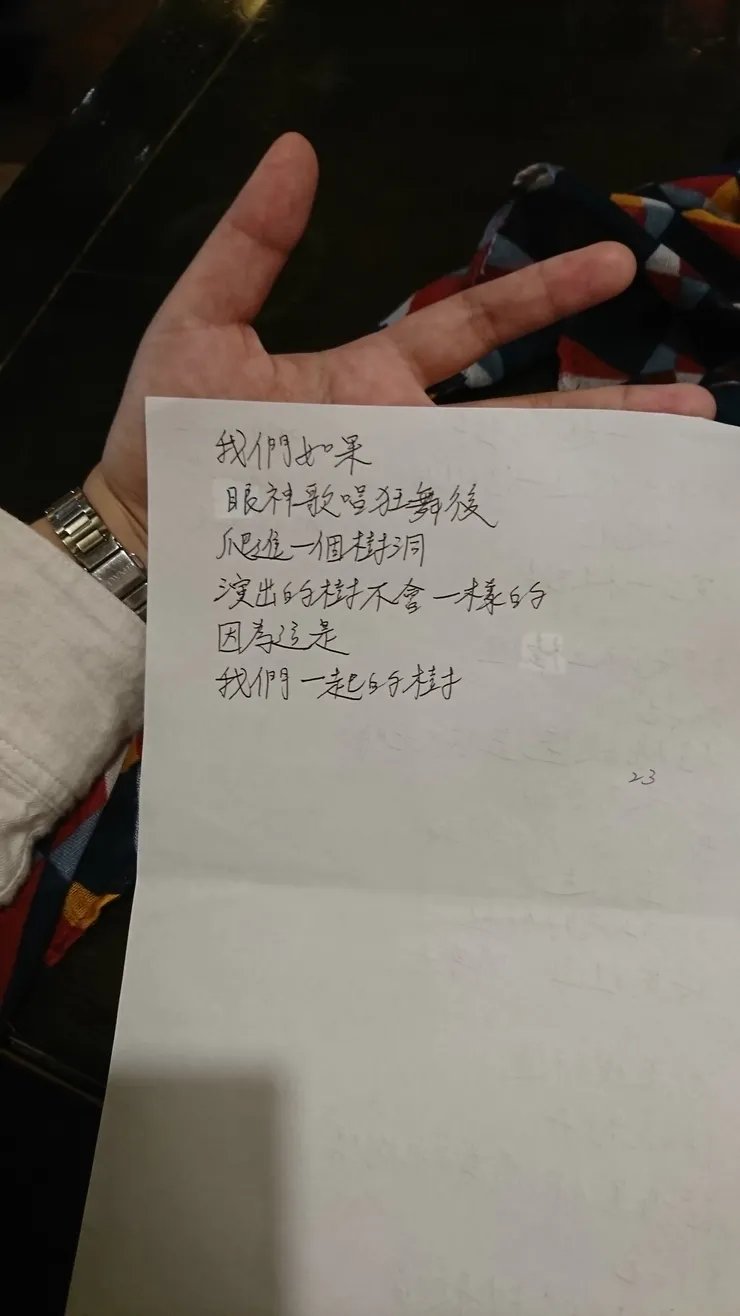 我們如果
眼神歌唱狂舞後
爬進一個樹洞
演出的樹不會一樣的
因為這是
我們一起的樹
23